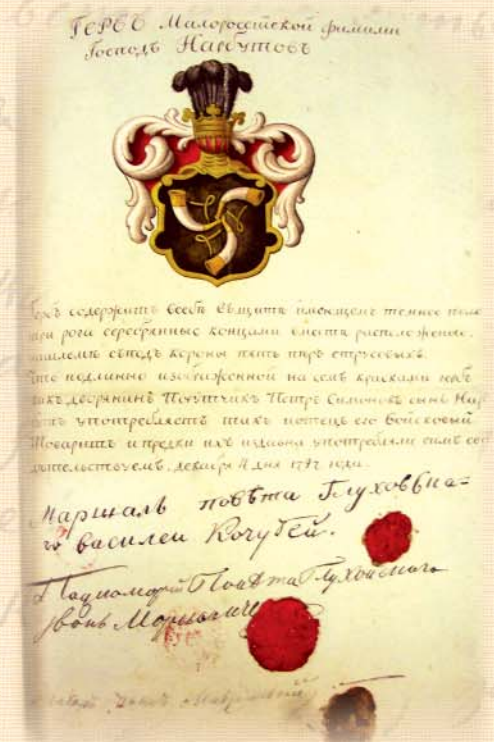 ГЕРБЪ Малоросѣйской фамилии
Господъ Нарбутовъ
Гербъ содержитъ всебѣ въщитѣ имеющемъ темное поле
три рога серебренные концами вместѣ расположение.
нашлемъ сѣподъ короны пять перъ струсовыхъ.
Что подлинно изображенной на семъ красками гербъ
дворянинъ Поручикъ Петръ Симоновъ сынъ Нар
употребляетъ такъ и отецъ его войсковый
Товарищъ и предки ихъ издавна употребляли симъ сви
дѣтельствуемъ, декабря дня года.
Маршалъ повѣта Глуховска=
го василеи Кочубеи.
Подкоморий Повѣта Глуховского